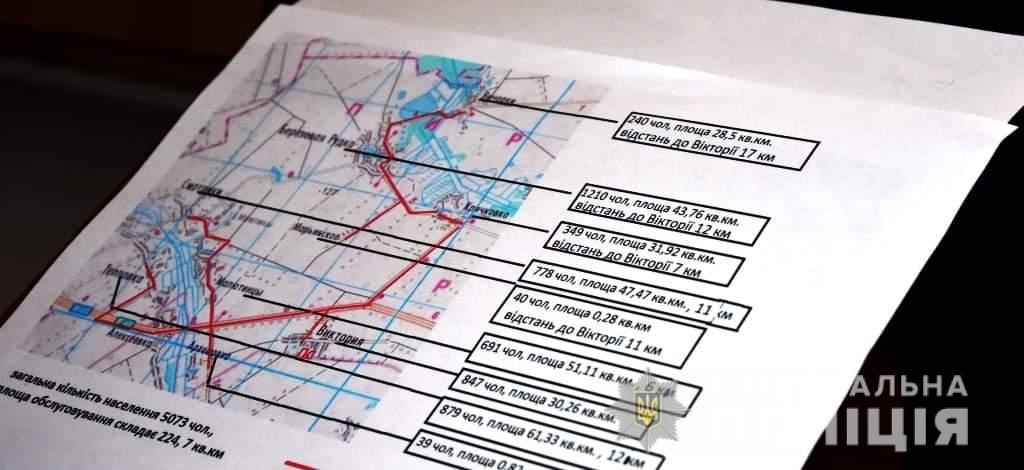 240 чол, площа 28,5 кв.км.
відстань до Вікторії 17 км
Березовая Рудка
1210 чол, площа 43,76 кв.км.
відстань до Вікторії 12 км
Крячковка
349 чол, площа 31,92 кв.км.
відстань до Вікторії 7 км
Марьинское
778 чол, площа 47,47 кв.км., 11 км
40 чол, площа 0,28 кв.км
відстань до Вікторії 11 км
Тепловка
Малютинцы
Виктория
691 чол, площа 51,11 кв.км., 6 км
Алексеевка
847 чол, площа 30,26 кв.км.
879 чол, площа 61,33 кв.км., 12 км
39 чол, площа 0,82
загальна кількість населення 5073 чол.,
площа обслуговування складає 224,7 кв.км